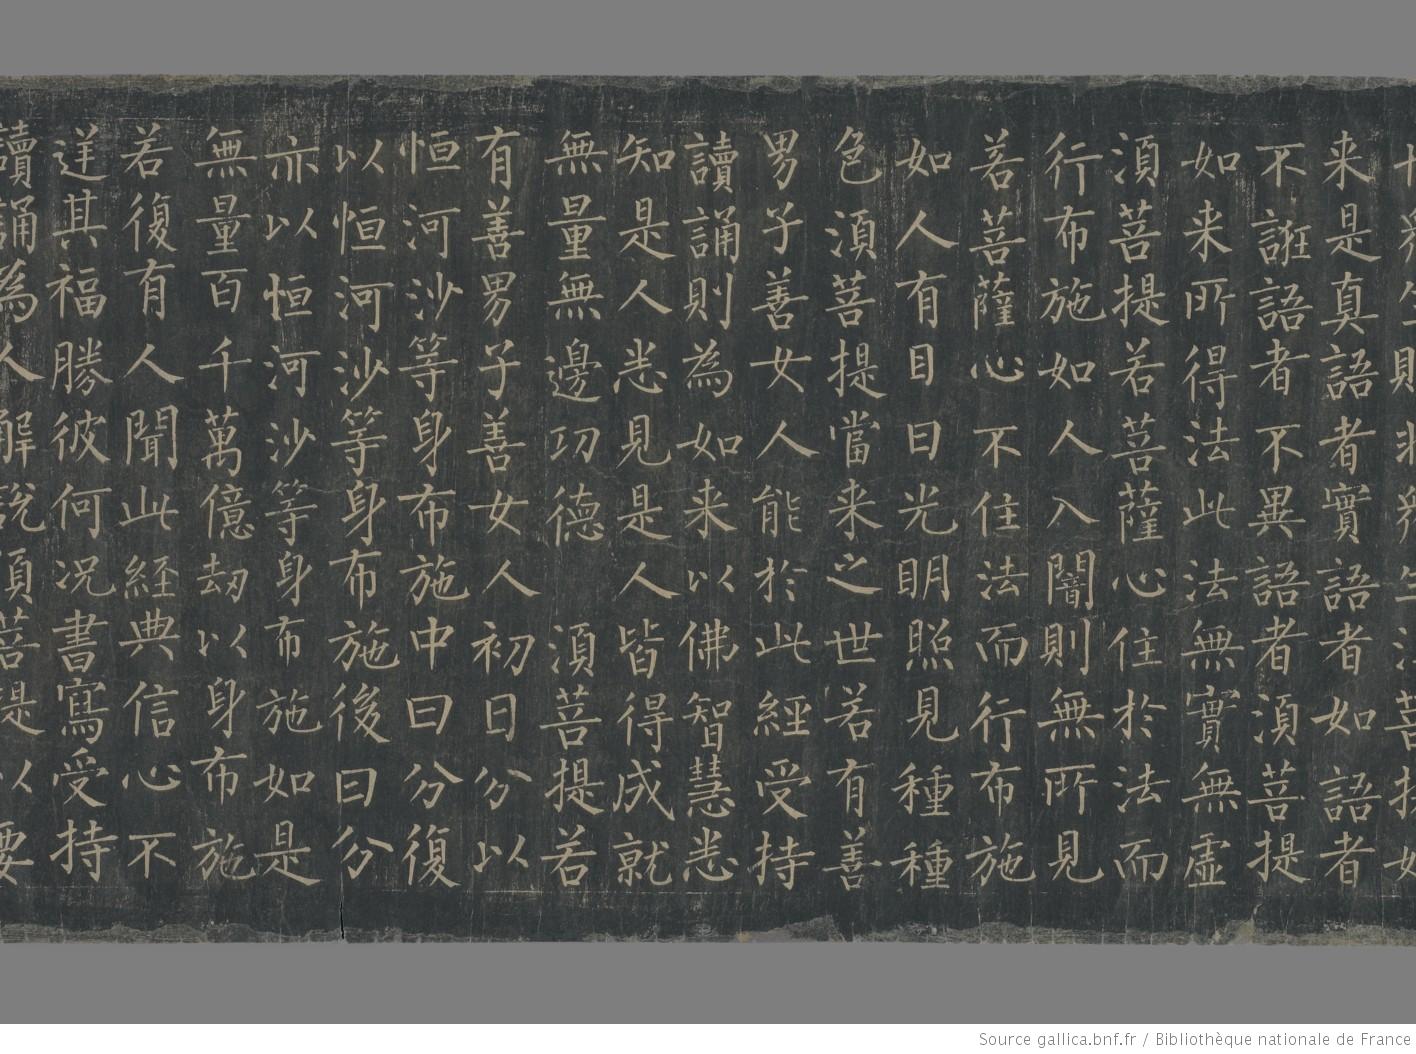 切衆生則非衆生須菩提如
来是真語者實語者如語者
不誑語者不異語者須菩提
如来所得法此法無實無虛
須菩提若菩薩心住於法而
行布施如人入闇則無所見
若菩薩心不住法而行布施
如人有目日光明照見種種
色須菩提當来之世若有善
男子善女人能於此經受持
讀誦則為如来以佛智慧悉
知是人悉見是人皆得成就
無量無邊功德 須菩提若
有善男子善女人初日分以
恒河沙等身布施中日分復
以恒河沙等身布施後日分
亦以恒河沙等身布施如是
無量百千萬億劫以身布施
若復有人聞此經典信心不
逆其福勝彼何況書寫受持
讀誦為人解說須菩提以要
Source gallica.bnf.fr / Bibliothèque nationale de France